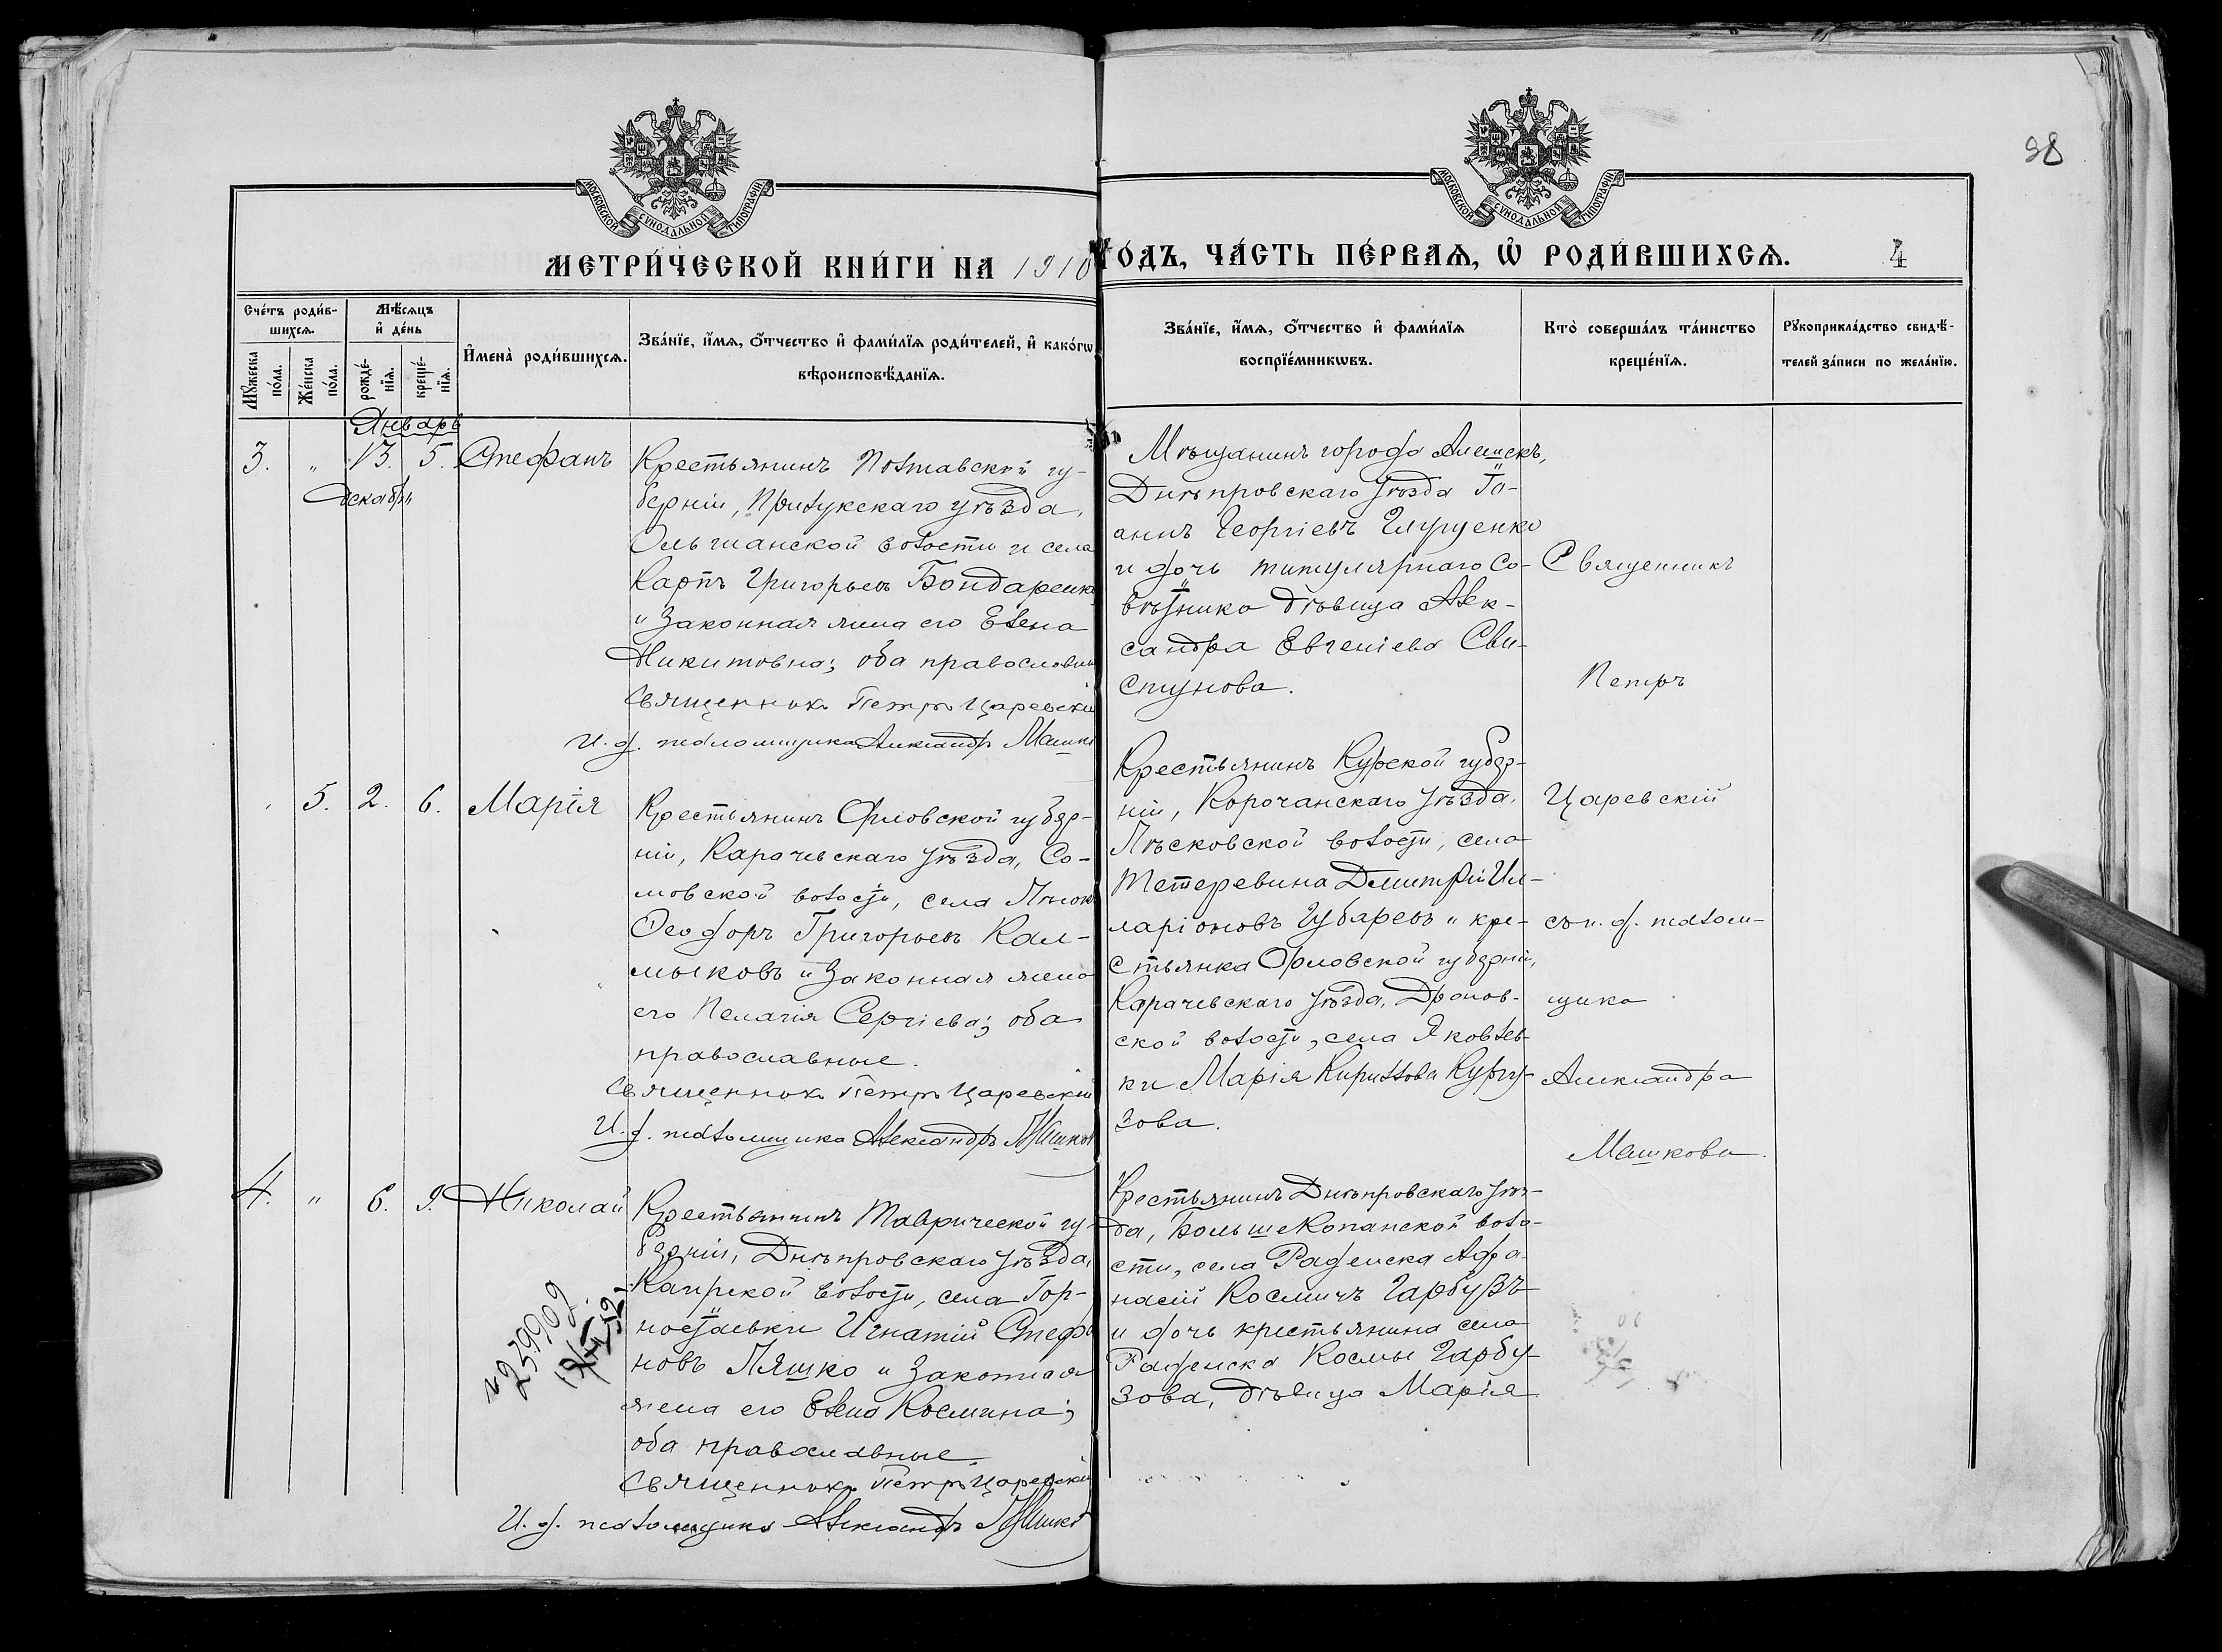 98
МОСКОВСКОЙ СѴНОДАЛЬНОЙ ТИПОГРАФІИ
МОСКОВСКОЙ СѴНОДАЛЬНОЙ ТИПОГРАФІИ
МЕТРИ́ЧЕСКОЙ КНИ́ГИ НА 1910 ГО́ДЪ, ЧА́СТЬ ПЕ́РВАѦ, Ѡ҆ РОДИ́ВШИХСѦ. 4
Сче́тъ роди́в-
шихсѧ.
Мѹ́жеска по́ла.
Же́нска по́ла.
Мѣ́сѧцъ
и҆ де́нь
рожде́-
нїѧ.
креще́-
нїѧ.
И҆мена̀ роди́вшихсѧ.
Зва́нїе, и҆́мѧ, ѻ҆́тчество и҆ фами́лїѧ роди́телей, и҆ како́гѡ
вѣроисповѣ́данїѧ.
Зва́нїе, и҆́мѧ, ѻ҆́тчество и҆ фами́лїѧ
воспрїе́мникѡвъ.
Кто̀ соверша́лъ та́инство
креще́нїѧ.
Рѹкоприкла́дство свидѣ́-
телей за́писи по жела́нїю.
Январь
3. " 13. 5. Стефанъ
Декабрь
Крестьянинъ Полтавской гу-
берніи, Прилукскаго уѣзда,
Ольшанской волости и села
Карпъ Григорьевъ Бондаренко
и законная жена его Елена
Никитовна; оба православные
Священникъ Петръ Царевскій
И. д. псаломщика Александръ Машковъ
Мѣщанинъ города Алешекъ,
Днѣпровскаго уѣзда Іо-
аннъ Георгіевъ Глущенко
и дочь титулярнаго со-
вѣтника дѣвица Алек-
сандра Евгеніева Сви-
стунова.
5. 2. 6. Марія
Крестьянинъ Орловской губер-
ніи, Карачевскаго уѣзда, Со-
мовской волости, села
Ѳеодоръ Григорьевъ Кал-
мыковъ и законная жена
его Пелагія Сергіева; оба
православные.
Священникъ Петръ Царевскій
И. д. псаломщика Александръ Машковъ
Крестьянинъ Курской губер-
ніи, Корочанскаго уѣзда,
Пѣсковской волости, села
Тетеревина Димитрій Ил-
ларіоновъ Губаревъ и кре-
стьянка Орловской губерніи,
Карачевскаго уѣзда, Дронов-
ской волости, села Яковлев-
ки Марія Кириллова Кургу-
зова.
4. " 6. 9. Николай
Крестьянинъ Таврической гу-
берніи, Днѣпровскаго уѣзда,
Каирской волости, села Гор-
ностаевки Игнатій Стефа
новъ Ляшко и законная
жена его Елена Космина;
оба православные.
Священникъ Петръ Царевскій
И. д. псаломщика Александръ Машковъ
№239909
Крестьянинъ Днѣпровскаго уѣз-
да, Больше Копанской воло-
сти, села Раденска Афа-
насій Космичъ Гарбузъ
и дочь крестьянина села
Раденска Космы Гарбу-
зова, дѣвица Марія
Священникъ
Петръ
Царевскій
съ и. д. псалом-
щика
Александра
Машкова.